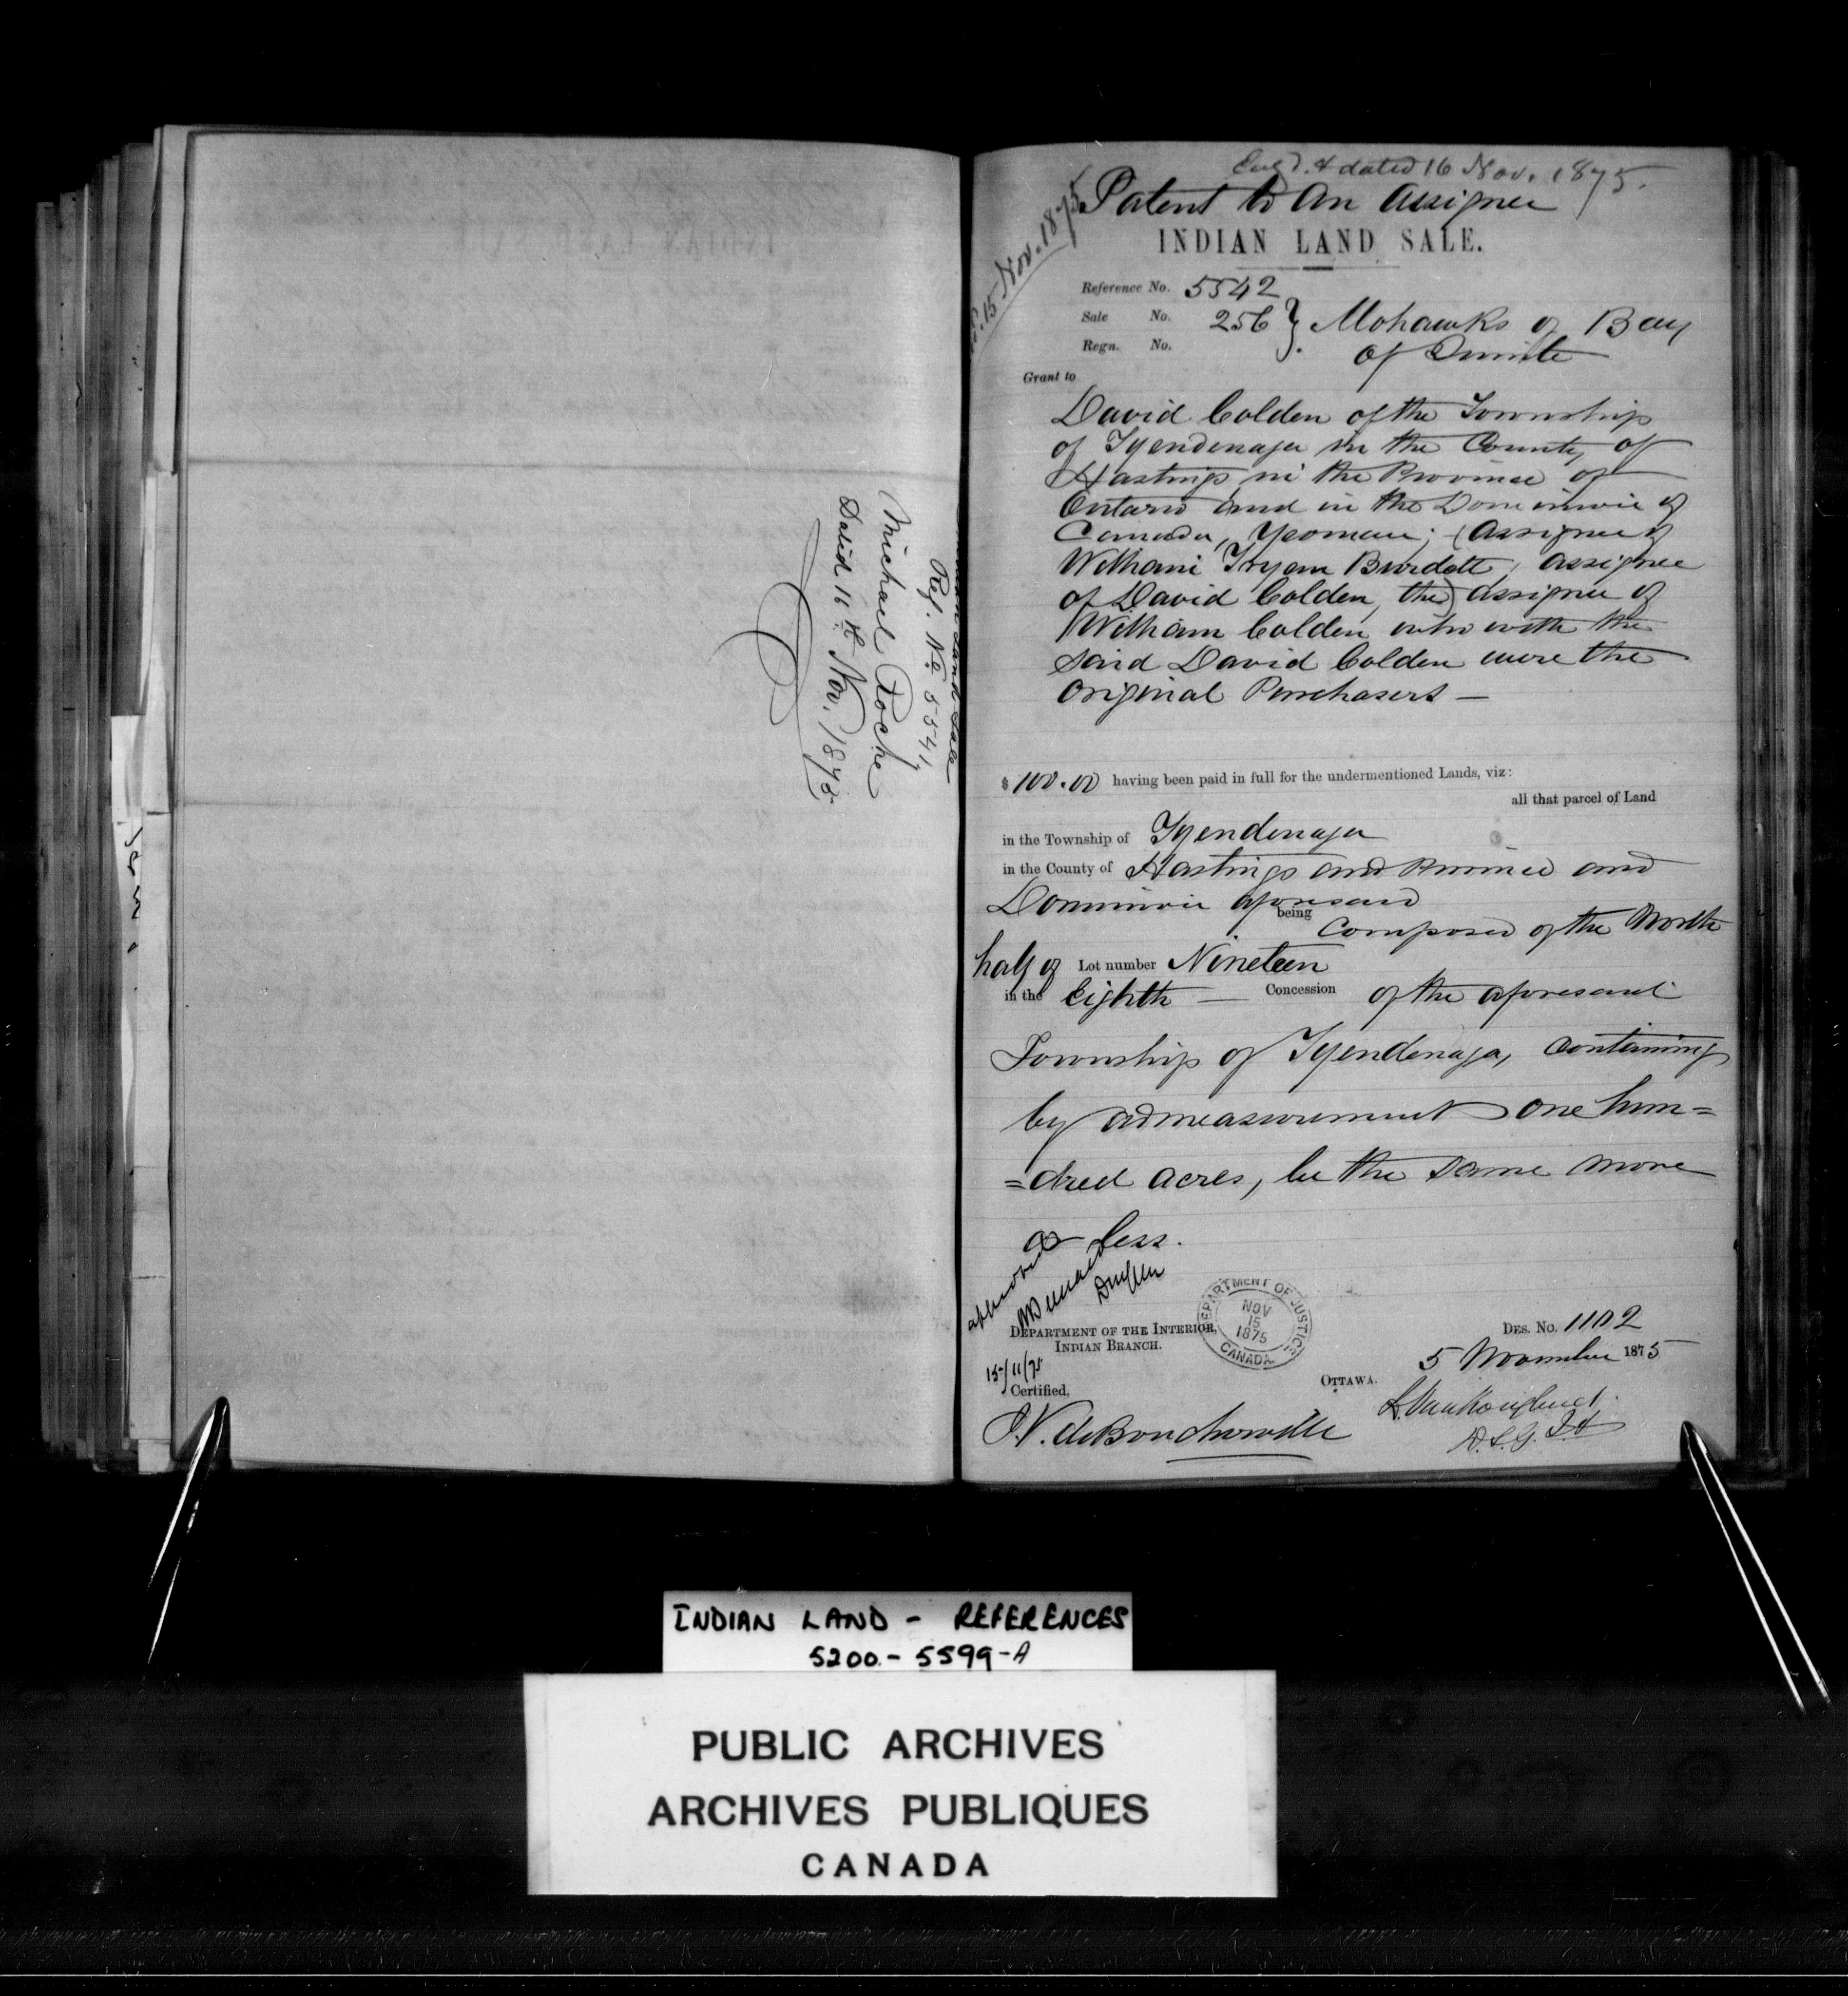 Indian Land Sale
Ref. No. 5541
Michael Roche
Dated 16th Nov. 1875
Eng'd. & dated 16 Nov. 1875.
Patent to An Assignee
15 Nov. 1875
INDIAN LAND SALE.
Reference No. 5542
Sale No. 256 } Mohawks of Bay
Regn. No. of Quinte
Grant to
David Colden of the Township
of Tyendenaga in the County of
Hastings in the Province of
Ontario and in the Dominion of
Canada, Yeoman; (Assignee of
William Tryam Burdett, assignee
of David Colden, the) assignee of
William Colden who with the
said David Colden were the
original Purchasers —
$ 100.00 having been paid in full for the undermentioned Lands, viz:
all that parcel of Land
in the Township of Tyendenaga
in the County of Hastings and Province and
Dominion aforesaid
being Composed of the North
half of Lot number Nineteen
in the Eighth — Concession of the aforesaid
Township of Tyendenaga, Containing
by admeasurement one hun=
=dred acres, be the same more
or less.
approved
DEPARTMENT OF JUSTICE
NOV
15
1875
CANADA
DEPARTMENT OF THE INTERIOR,
INDIAN BRANCH.
DES. No. 1102
5 November 1875
15/11/75
OTTAWA.
Certified,
L. Vankoughnet
D.S.G. I.A
J.V. de Boucherville
INDIAN LAND - REFERENCES
5200 - 5599-A
PUBLIC ARCHIVES
ARCHIVES PUBLIQUES
CANADA